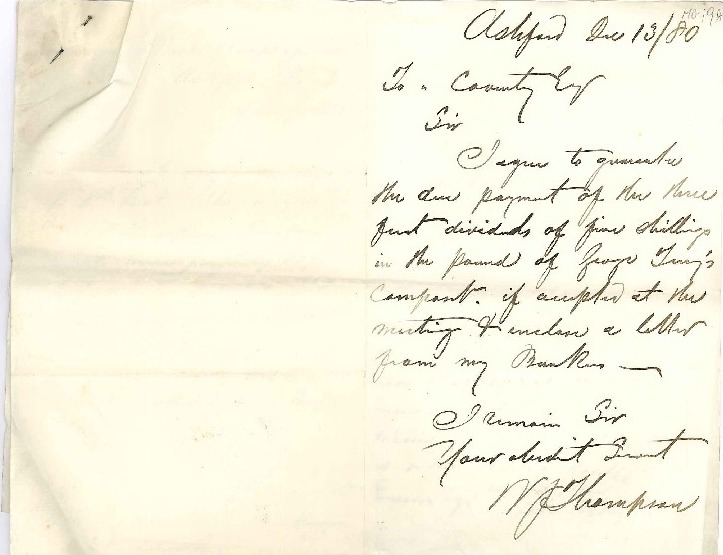 Ashford Dec 13/80
To Coventry Esqr
Sir
I agree to guarantee
the due payment of the three
first dividends of five shillings
in the pound of George
if accepted at the
meeting & enclose a letter
from my Bankers
I remain Sir
Your obedient Servant
W J Thompson